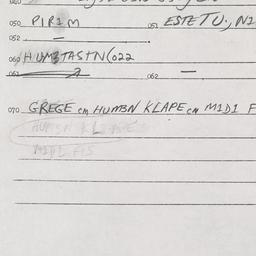 050 PIRIM 051 ESTETU., NI
052 —
060 HUMBTASTN(022
061 062 —
070 GREGE CM HUMBN KLAPE CN MIDI F
HUMBN KLAPE
MIDI FIS